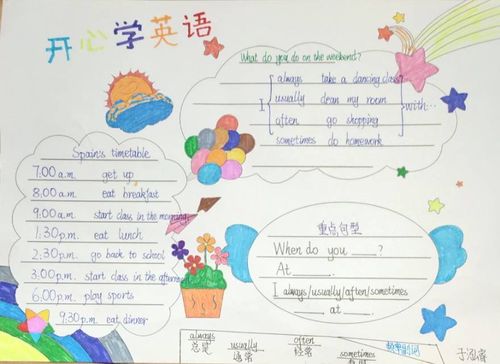 开心学英语
What do you do on the weekend?
always take a dancing class
usually clean my room
I often go shopping with...
sometimes do homework
Spain's timetable
7:00 a.m. get up
8:00 a.m. eat breakfast
9:00 a.m. start class in the morning
1:30 p.m. eat lunch
2:30 p.m. go back to school
3:00 p.m. start class in the afternoon
6:00 p.m. play sports
9:30 p.m. eat dinner
重点句型
When do you ____?
At ____.
I always/usually/often/sometimes
____ at ____.
always usually often sometimes
总是 通常 经常